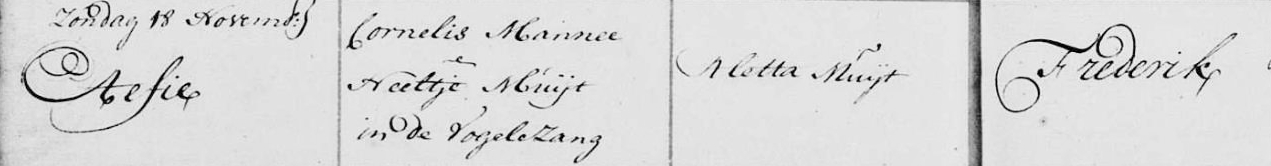 Zondag 18 Novemb:
Aefie
Cornelis Mannee
Neeltje Muijt
in de Vogelezang
Aletta Muijt
Frederik